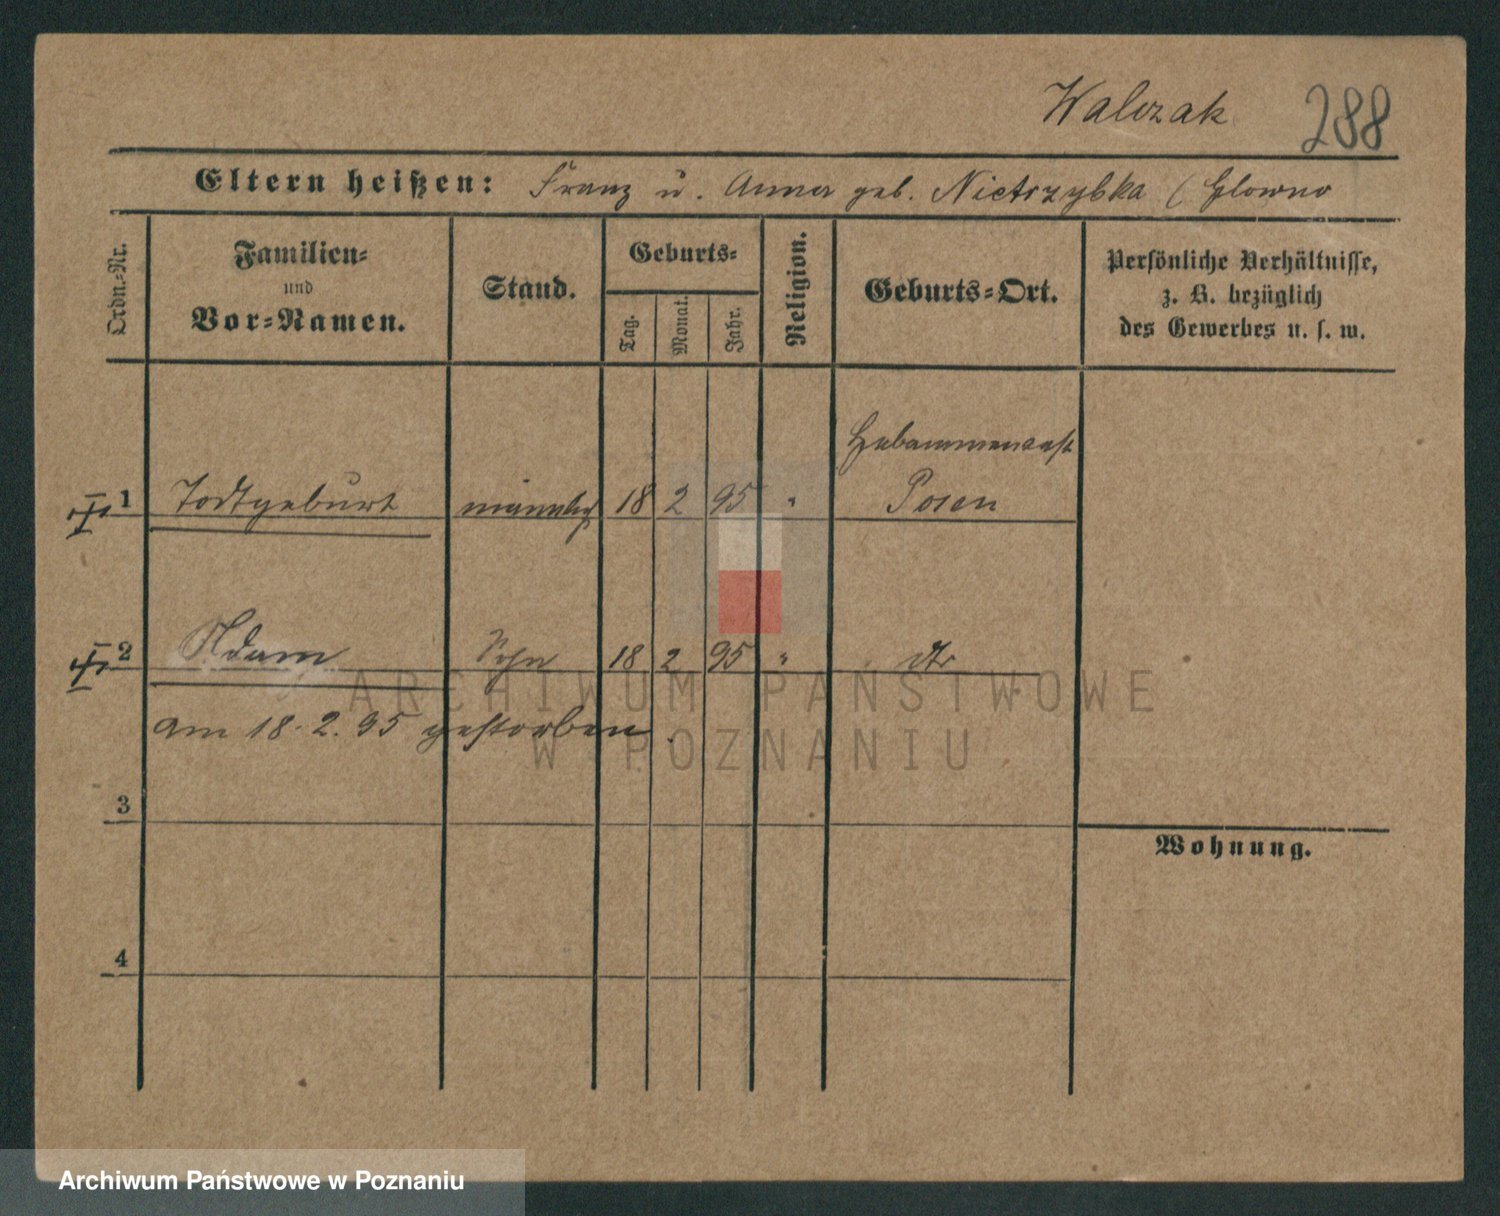 Walczak 288
Eltern heißen: Franz u. Anna geb. Nietrzybka ( Glowno
Ordn.-Nr.
Familien- und Vor-Namen.
Stand.
Geburts-
Tag.
Monat.
Jahr.
Religion.
Geburts-Ort.
Persönliche Verhältnisse,
z. B. bezüglich
des Gewerbes u. s. w.
Hebammenanst
1 Todtgeburt männlich 18 2 95 " Posen
2 Adam Sohn 18 2 95 " dto
am 18. 2. 95 gestorben.
3
Wohnung.
4
ARCHIWUM PAŃSTWOWE
W POZNANIU
Archiwum Państwowe w Poznaniu